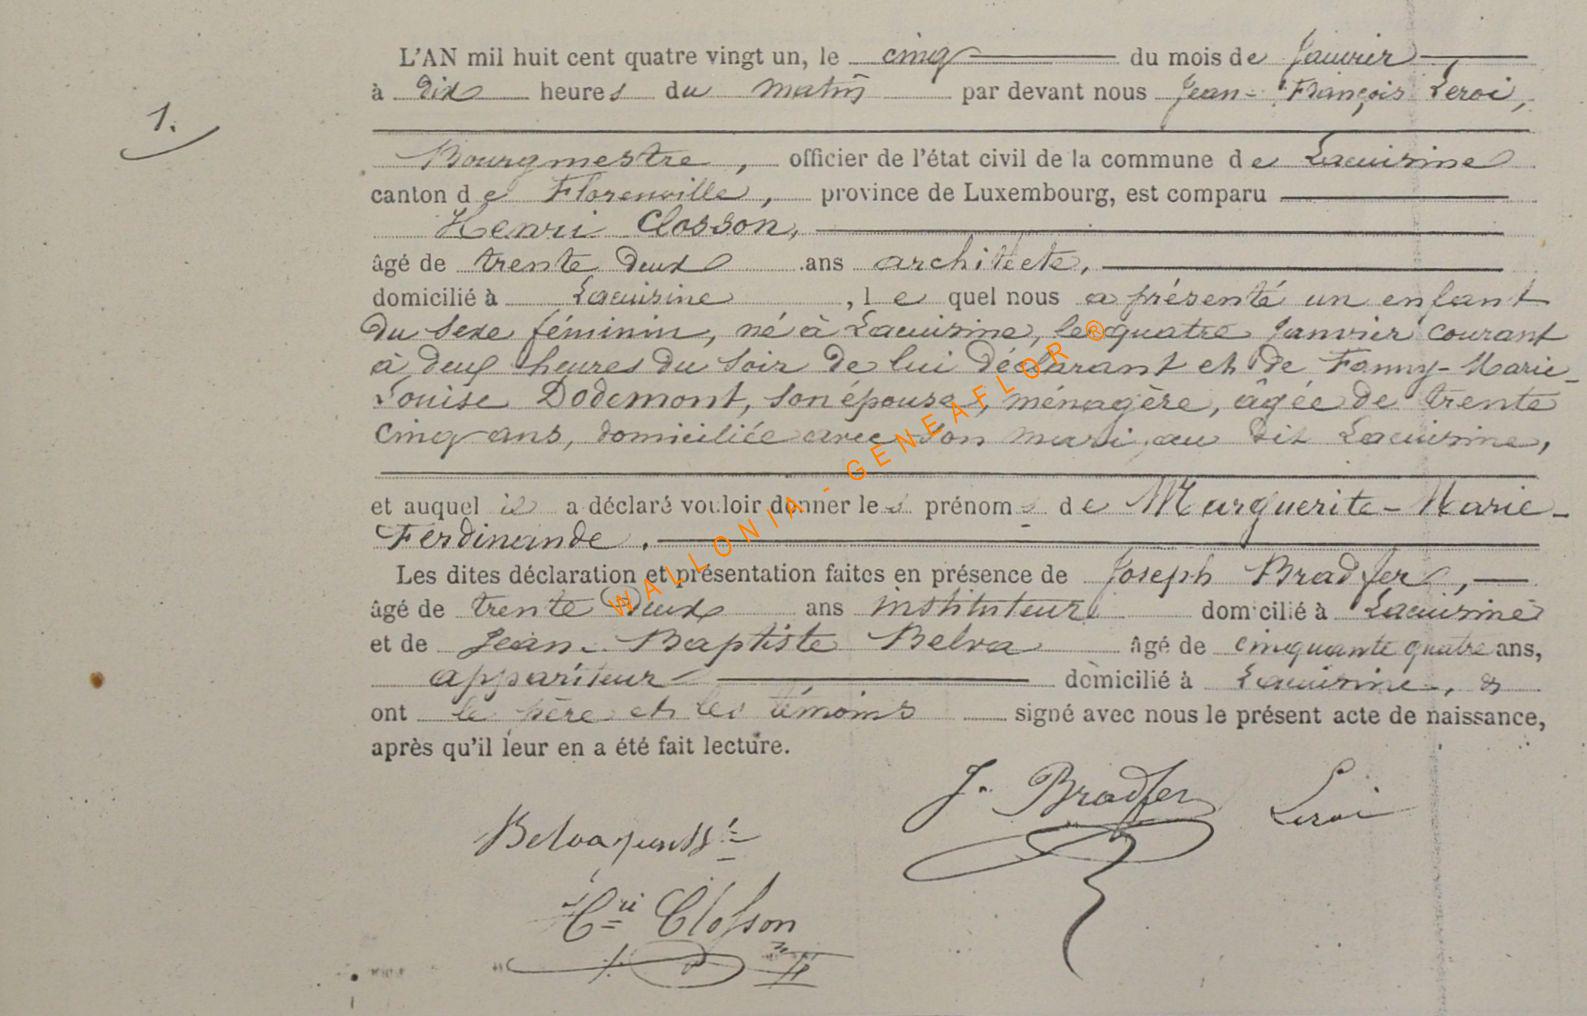 L'AN mil huit cent quatre vingt un, le cinq du mois de Janvier
à dix heures du matin par devant nous Jean-François Leroi,
1.
Bourgmestre, officier de l'état civil de la commune de Lacuisine
canton de Florenville, province de Luxembourg, est comparu
Henri Closson,
âgé de trente deux ans architecte,
domicilié à Lacuisine, lequel nous a présenté un enfant
du sexe féminin, né à Lacuisine, le quatre Janvier courant
à deux heures du soir de lui déclarant et de Fanny-Marie-
Louise Dodemont, son épouse, ménagère, âgée de trente
cinq ans, domiciliée avec son mari au dit Lacuisine,
et auquel il a déclaré vouloir donner les prénoms de Marguerite-Marie-
Ferdinande.
Les dites déclaration et présentation faites en présence de Joseph Bradfer,
âgé de trente deux ans instituteur domicilié à Lacuisine
et de Jean-Baptiste Belva âgé de cinquante quatre ans,
appariteur domicilié à Lacuisine, &
ont le père et les témoins signé avec nous le présent acte de naissance,
après qu'il leur en a été fait lecture.
J. Bradfer Leroi
Belva
Hri Closson
WALLONIA - GENEAFLOR ®